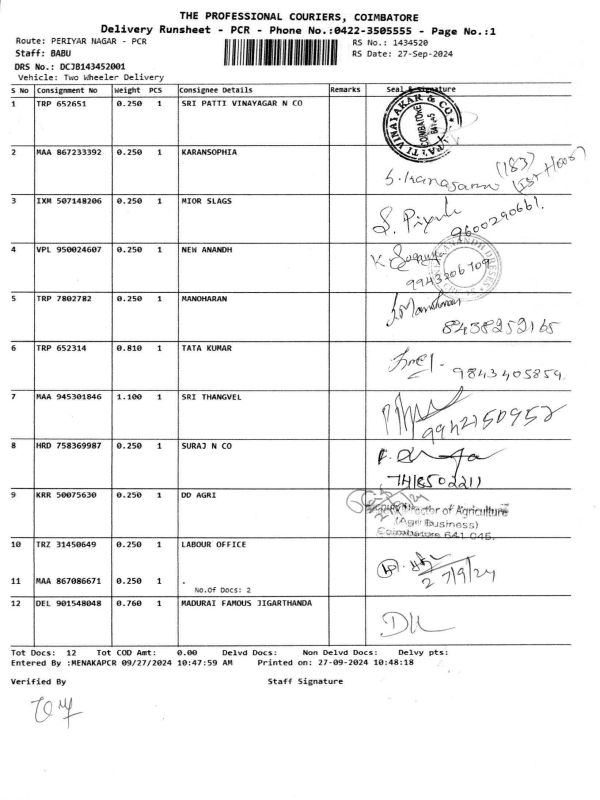 THE PROFESSIONAL COURIERS, COIMBATORE
Delivery Runsheet - PCR - Phone No.:0422-3505555 - Page No.:1
Route: PERIYAR NAGAR - PCR RS No.: 1434520
Staff: BABU RS Date: 27-Sep-2024
DRS No.: DCJB143452001
Vehicle: Two Wheeler Delivery
S No Consignment No Weight PCS Consignee Details Remarks Seal & Signature
1 TRP 652651 0.250 1 SRI PATTI VINAYAGAR N CO
2 MAA 867233392 0.250 1 KARANSOPHIA
(183)
3 IXM 507148206 0.250 1 MIOR SLAGS
9600290661.
4 VPL 950024607 0.250 1 NEW ANANDH
9943206709
5 TRP 7802782 0.250 1 MANOHARAN
8438252165
6 TRP 652314 0.810 1 TATA KUMAR
9843405859
7 MAA 945301846 1.100 1 SRI THANGVEL
9942150952
8 HRD 758369987 0.250 1 SURAJ N CO
9 KRR 50075630 0.250 1 DD AGRI
Director of Agriculture
(Agri Business)
Coimbatore 641 045.
10 TRZ 31450649 0.250 1 LABOUR OFFICE
27/9/24
11 MAA 867086671 0.250 1 .
No.Of Docs: 2
12 DEL 901548048 0.760 1 MADURAI FAMOUS JIGARTHANDA
Tot Docs: 12 Tot COD Amt: 0.00 Delvd Docs: Non Delvd Docs: Delvy pts:
Entered By :MENAKAPCR 09/27/2024 10:47:59 AM Printed on: 27-09-2024 10:48:18
Verified By Staff Signature